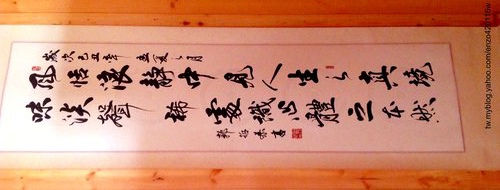 歲次己丑年 孟夏之月
風恬浪靜中見人生之真境
味淡聲稀處識心體之本然
tw.myblog.yahoo.com/enzo420116w